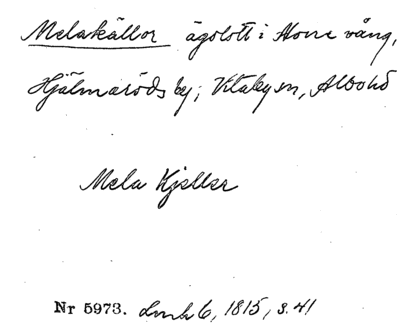 Melakällor ägolott i Horne vång,
Hjälmaröds by, Vitaby sn, Albo hd
Mela Kjeller
Nr 5973. Lmk 6, 1815, s. 41